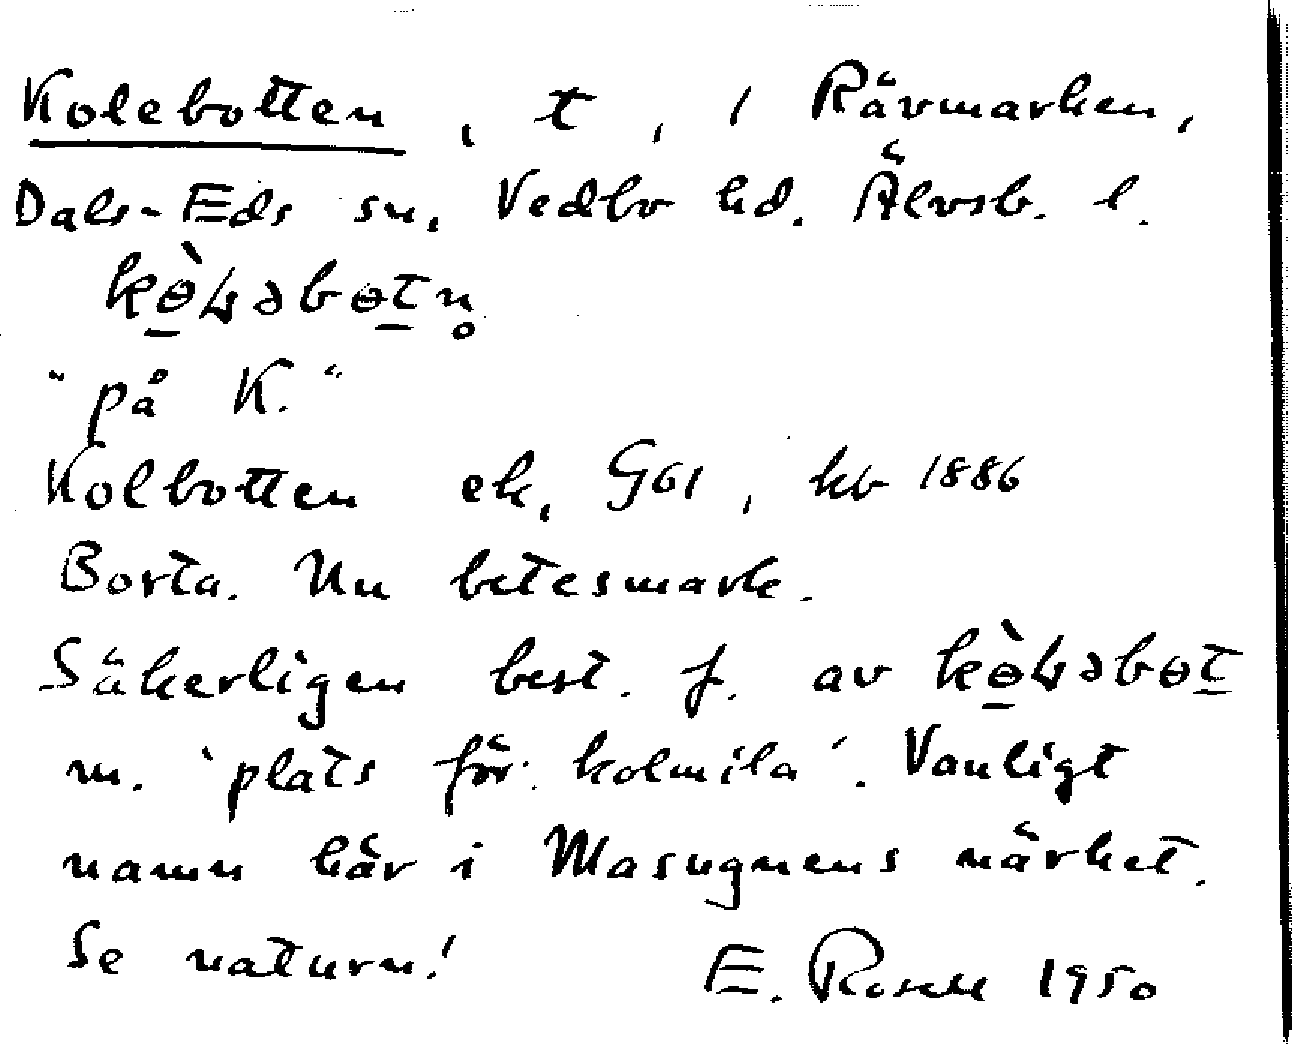 Kolebotten, t, i Rävmarken,
Dals-Eds sn, Vedbo hd. Älvsb. l.
kɵ̀ɽəbɵtn̥
"på K."
Kolbotten ek, GGI, kb 1886
Borta. Nu betesmark.
Säkerligen best. f. av kɵ̀ɽəbɵt
m. 'plats för kolmila'. Vanligt
namn här i Masugnens närhet.
Se naturn!
E. Rosell 1950